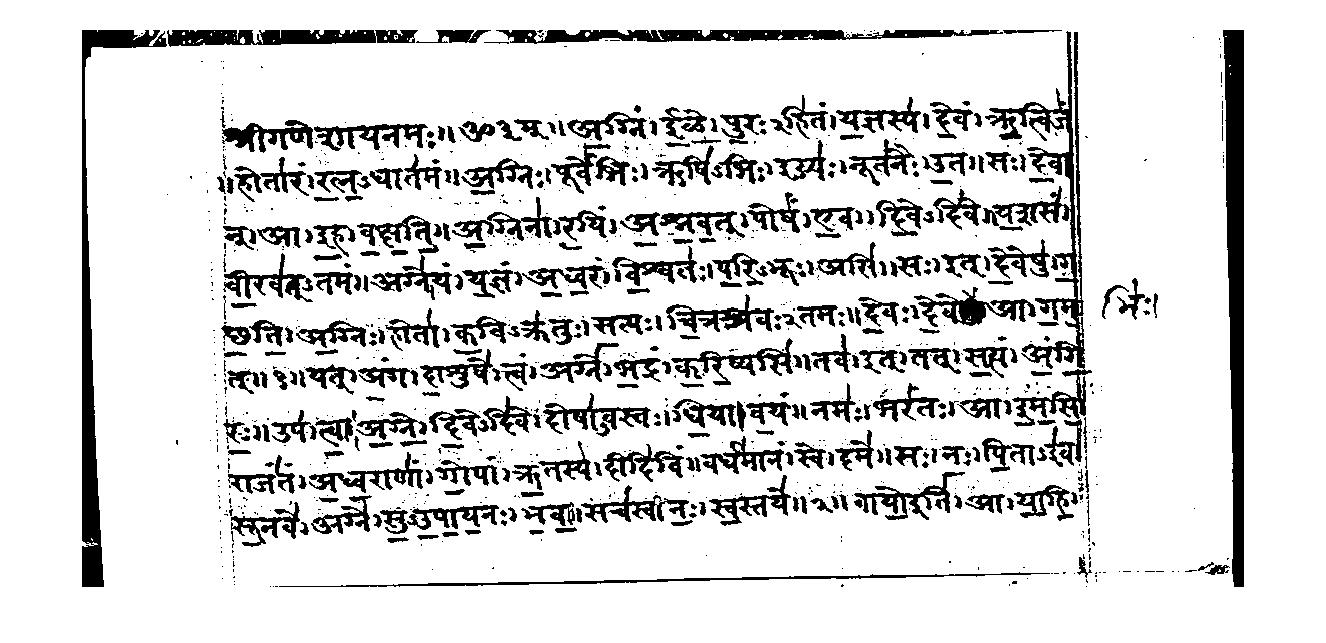 श्रीगणेशाय नमः॥ ॐ३म्॥ अ॒ग्निं। ई॒ळे॒। पु॒रःऽहि॑तं। य॒ज्ञस्य॑। दे॒वं। ऋ॒त्विजं॑
॥होता॑रं। र॒त्न॒ऽधात॑मं॥ अ॒ग्निः। पूर्वे॑भिः। ऋषि॑ऽभिः। ईड्यः॑। नूत॑नैः। उ॒त॥ सः। दे॒वा
न्। आ। इ॒ह। व॒क्ष॒ति॒॥ अ॒ग्निना॑। र॒यिं। अ॒श्न॒व॒त्। पोषं॑। ए॒व। दि॒वेऽदि॑वे॥ य॒शसं॑
वी॒रव॑त्ऽतमं॥ अग्ने॑। यं। य॒ज्ञं। अ॒ध्व॒रं। वि॒श्वतः॑। प॒रि॒ऽभूः। असि॑॥ सः। इत्। दे॒वेषु॑। ग॒
च्छ॒ति॒। अ॒ग्निः। होता॑। क॒विऽक्र॑तुः। स॒त्यः। चि॒त्रश्र॑वःऽतमः॥ दे॒वः। दे॒वे आ। ग॒म॒
भिः॑।
त्॥१॥ यत्। अं॒ग। दा॒शुषे॑। त्वं। अग्ने॑। भ॒द्रं। क॒रि॒ष्यसि॑॥ तव॑। इत्। तत्। स॒त्यं। अं॒गि॒
रः॒॥ उप॑। त्वा॒। अ॒ग्ने॒। दि॒वेऽदि॑वे। दोषा॑ऽवस्तः। धि॒या। व॒यं॥ नमः॑। भरं॑तः। आ। इ॒म॒सि॒
राजं॑तं। अ॒ध्व॒राणां॑। गो॒पां। ऋ॒तस्य॑। दीदि॑विं॥ वर्ध॑मानं। स्वे। दमे॑॥ सः। नः॒। पि॒ताऽइ॑व
सू॒नवे॑। अग्ने॑। सु॒ऽउ॒पा॒य॒नः। भ॒व॒॥ सच॑स्व। नः॒। स्व॒स्तये॑॥२॥ वायो॒ इति॑। आ। या॒हि॒।